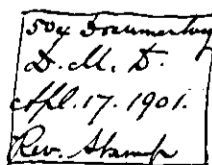 50¢ Documentary
D. M. D.
Apl. 17. 1901.
Rev. Stamp